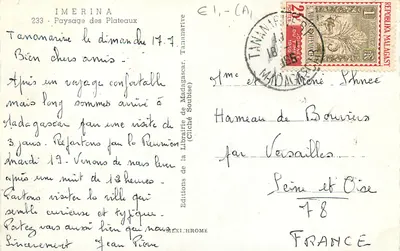 IMERINA
233 - Paysage des Plateaux
Tananarive le dimanche 17.7.
Bien chers amis -
Après un voyage confortable
mais long sommes arrivé à
Madagascar pour une visite de
3 jours. Repartons pour la Réunion
mardi 19. Venons de nous lever
après une nuit de 12 heures.
Partons visiter la ville qui
semble curieuse et typique.
Portez vous aussi bien que nous
Sincèrement Jean Pierre
Editions de la Librairie de Madagascar, Tananarive
(Cliché Soubise)
€1,- (A)
TANANARIVE
MADAGASCAR
REPOBLIKA MALAGASY
Mme et René
Hameau de Bouviers
par Versailles
Seine et Oise
78
FRANCE